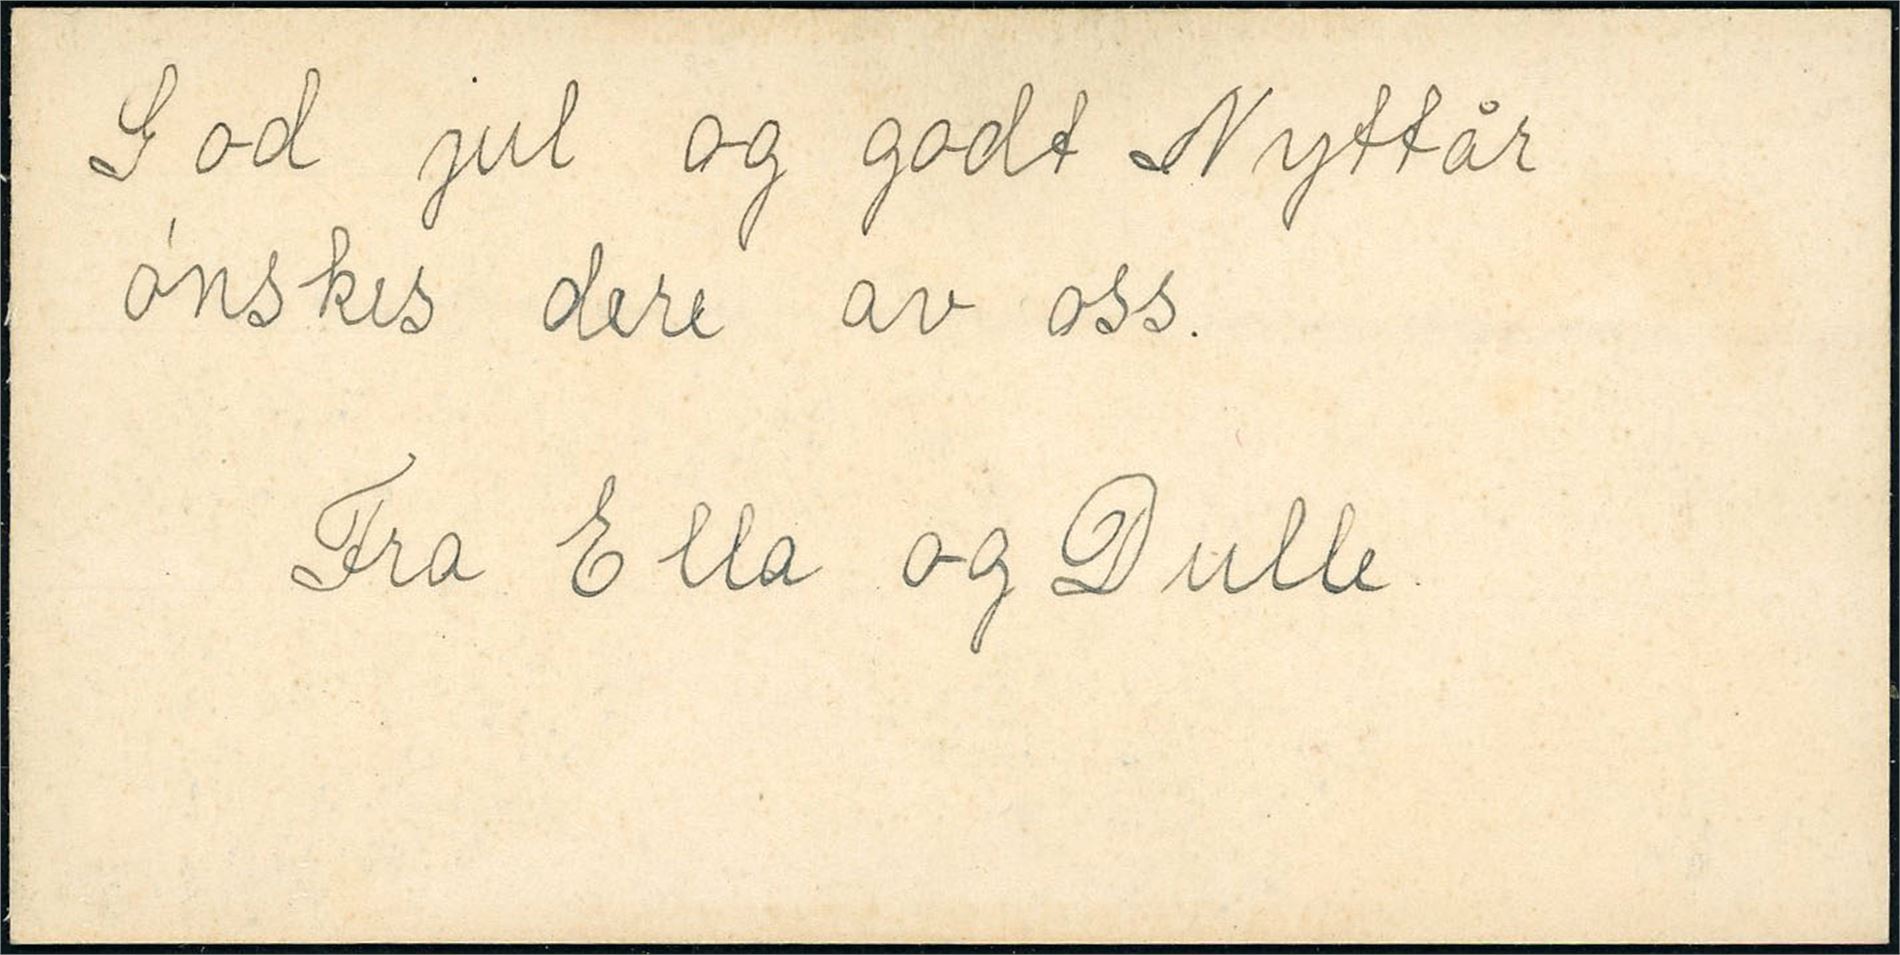 God jul og godt Nyttår
ónskes dere av oss.
Fra Ella og Dulle.